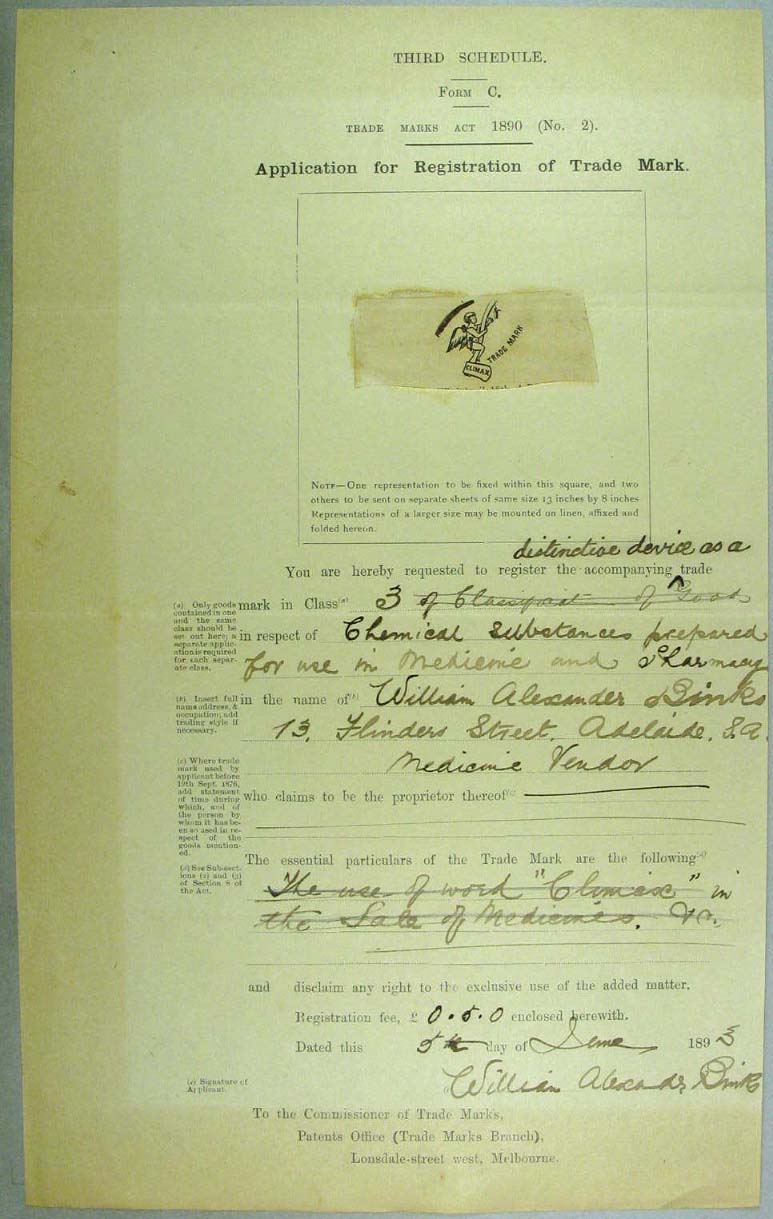 THIRD SCHEDULE.
FORM C.
TRADE MARKS ACT 1890 (No. 2).
Application for Registration of Trade Mark.
TRADE MARK
CLIMAX
NOTE—One representation to be fixed within this square, and two
others to be sent on separate sheets of same size 13 inches by 8 inches
Representations of a larger size may be mounted on linen, affixed and
folded hereon.
distinctive device as a
You are hereby requested to register the accompanying trade
(a) Only goods contained in one and the same class should be set out here; a separate application is required for each separate class.
mark in Class(a) 3 of of Goods
in respect of Chemical Substances prepared
for use in Medicine and Pharmacy
(b) Insert full name address, & occupation; add trading style if necessary.
in the name of(b) William Alexander Binks
13, Flinders Street, Adelaide, S.A.
Medicine Vendor
(c) Where trade mark used by applicant before 12th Sept. 1876, add statement of time during which, and of the person by whom it has been so used in respect of the goods mentioned.
who claims to be the proprietor thereof(c)
The essential particulars of the Trade Mark are the following(d)
(d) See Sub-sections (1) and (2) of Section 8 of the Act.
The use of word "Climax" in
the Sale of Medicines.
and disclaim any right to the exclusive use of the added matter.
Registration fee, £ 0.5.0 enclosed herewith.
Dated this 5th day of June 1893
(e) Signature of Applicant.
William Alexander Binks
To the Commissioner of Trade Marks,
Patents Office (Trade Marks Branch),
Lonsdale-street west, Melbourne.